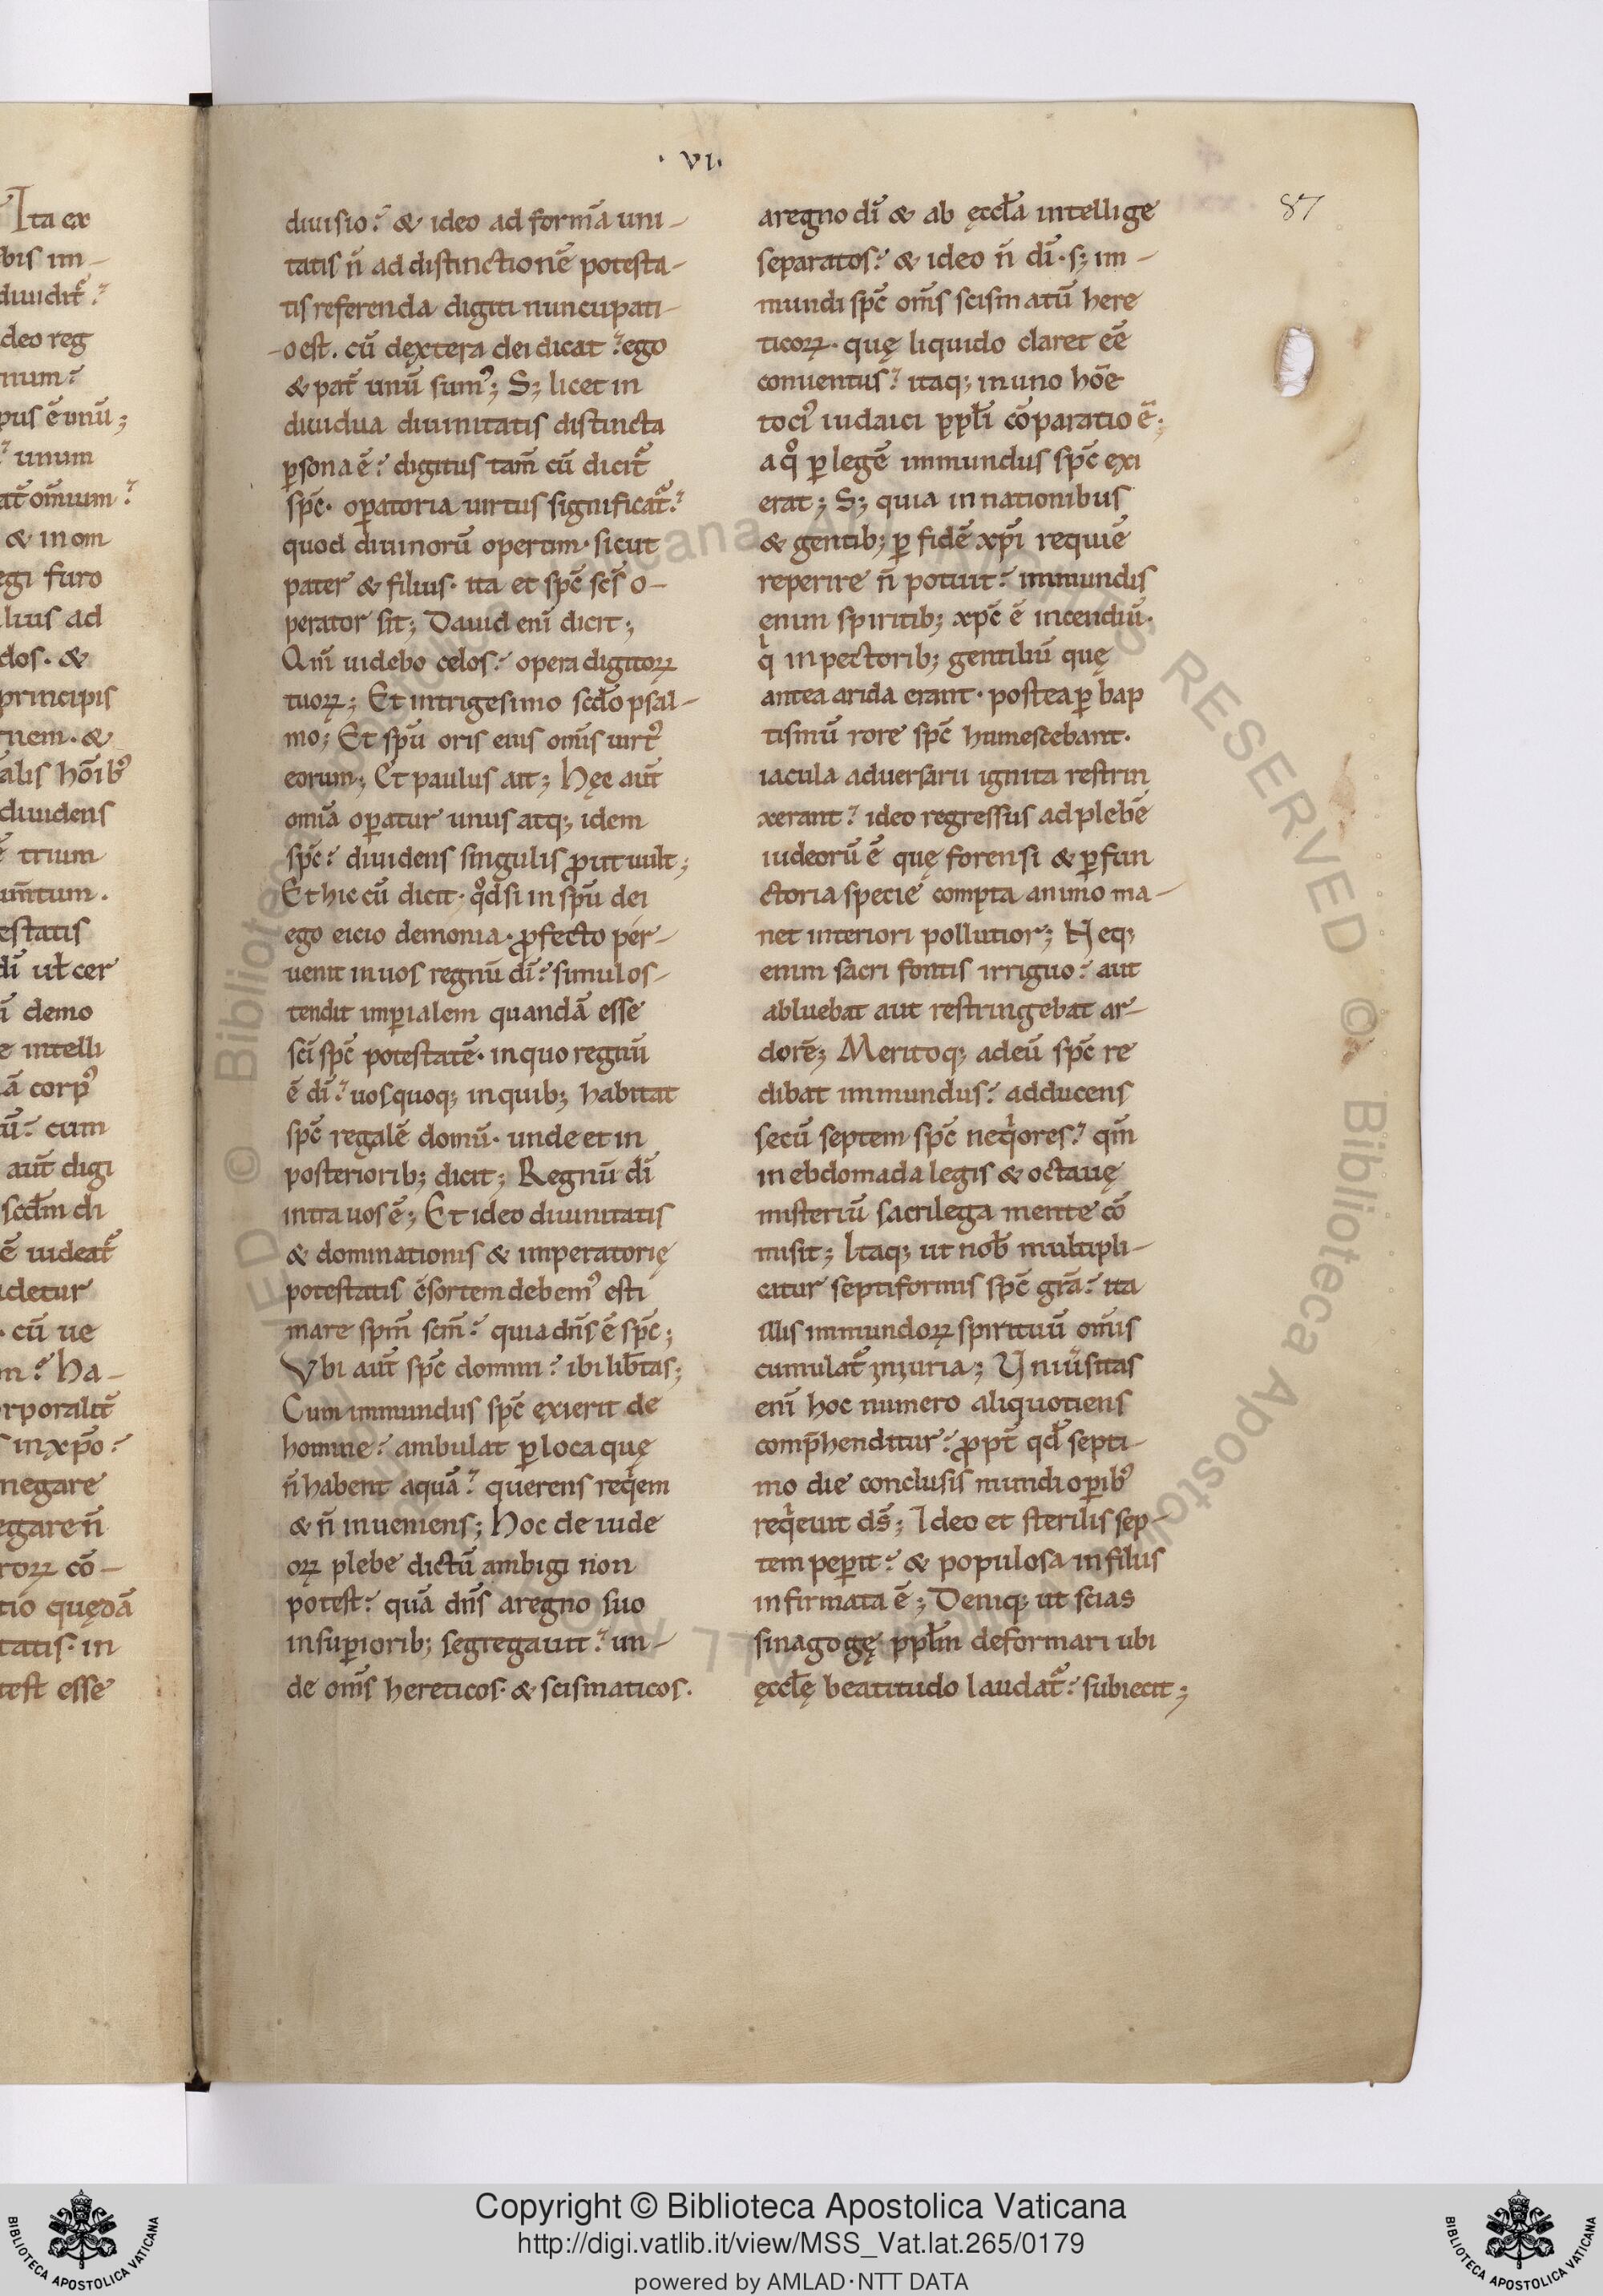 · VI·
87
diuisio? & ideo ad formā uni-
tatis n̄ ad distinctionē potesta-
tis referenda digiti nuncupati-
o est. cū dęxtera dei dicat? ego
& pat̄ unū sumꝰ; S; licet in
diuidua diuinitatis distincta
ꝑsona ē? digitus tam̄ cū dicit᷑
sp̄c· oꝑatoria uirtus significat᷑?
quod diuinorū operum· sicut
pater & filius· ita et sp̄c sc̄s o-
perator sit; Dauid eni᷑ dicit;
Qm̄ uidebo celos? opera digitoꝝ
tuoꝝ; Et in trigesimo scd̄o psal-
mo; Et spū oris eius om̄s uirtꝰ
eorum; Et paulus ait; Hęc aūt
omīa oꝑatur unus atq; idem
sp̄c? diuidens singulis ꝓut uult;
Et hic cū dicit· qd̊ si in spū dei
ego eicio demonia· ꝓfecto per-
uenit in uos regnū dī? simul os-
tendit imꝑialem quandā esse
sc̄i sp̄c potestatē· in quo regnū
ē dī? uos quoq; in quib; habitat
sp̄c regalē domū· unde et in
posteriorib; dicit; Regnū dī
intra uos ē; Et ideo diuinitatis
& dominationis & imperatorię
potestatis c̄sortem debemꝰ esti
mare spm̄ scm̄? quia dn̄s ē sp̄c;
Vbi aūt sp̄c domini? ibi lib̄tas;
Cum immundus sp̄c ęxierit de
homine? ambulat ꝑ loca quę
n̄ habent aquā? querens reqͥem
& n̄ inueniens; Hoc de iude
oꝝ plebe dictū ambigi non
potest? quā dn̄s a regno suo
in suꝑiorib; segregauit? un-
de om̄s hereticos· & scismaticos·
a regno dī & ab ęccl̄a intellige
separatos? & ideo n̄ dī· s; im-
mundi sp̄c om̄s scismatū here
ticoꝝ· quę liquido claret eē
conuentus? itaq; in uno hōe
tociꝰ iudaici ppl̄i cōparatio ē;
a qͦ ꝑ legē immundus sp̄c exi
erat; S; quia in nationibus
& gentib; ꝑ fidē xp̄i requiē
reperire n̄ potuit? immundis
enim spiritib; xp̄c ē incendiū·
qͥ in pectorib; gentiliū quę
antea arida erant· postea ꝑ bap
tismū rore sp̄c humescebant·
iacula aduersarii ignita restrin
xerant? ideo regressus ad plebē
iudeorū ē quę forensi & ꝑfun
ctoria specie compta animo ma-
net interiori pollutior; Neq;
enim sacri fontis irriguo? aut
abluebat aut restringebat ar-
dorē; Meritoq; ad eū sp̄c re
dibat immundus? adducens
secū septem sp̄c neqͥores? qm̄
in ebdomada legis & octauę
misteriū sacrilega mente cō
misit; Itaq; ut nob̄ multipli-
catur septiformis sp̄c grā? ita
illis immundoꝝ spirituū om̄is
cumulat᷑ iniuria; Vniūsitas
eni᷑ hoc numero aliquotiens
comp̄henditur? ꝓpt̄ qd̄ septi-
mo die conclusis mundi oꝑibꝰ
reqͥeuit d̄s; Ideo et sterilis sep-
tem peꝑit? & populosa in filiis
infirmata ē; Deniq; ut scias
sinagogę ppl̄m deformari ubi
ęccl̄ę beatitudo laudat᷑? subiecit;
Copyright © Biblioteca Apostolica Vaticana
http://digi.vatlib.it/view/MSS_Vat.lat.265/0179
powered by AMLAD·NTT DATA
BIBLIOTECA APOSTOLICA VATICANA
BIBLIOTECA APOSTOLICA VATICANA